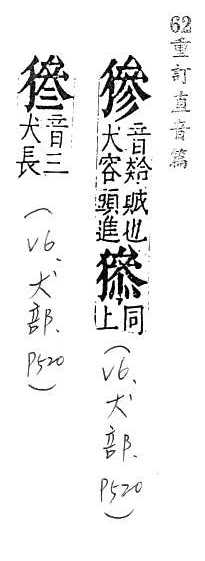 62重訂直音篇
㺑
音賊也
犬容頭進
同
上
(V6、犬部、P520)
音三
犬長
(V6、犬部、P520)